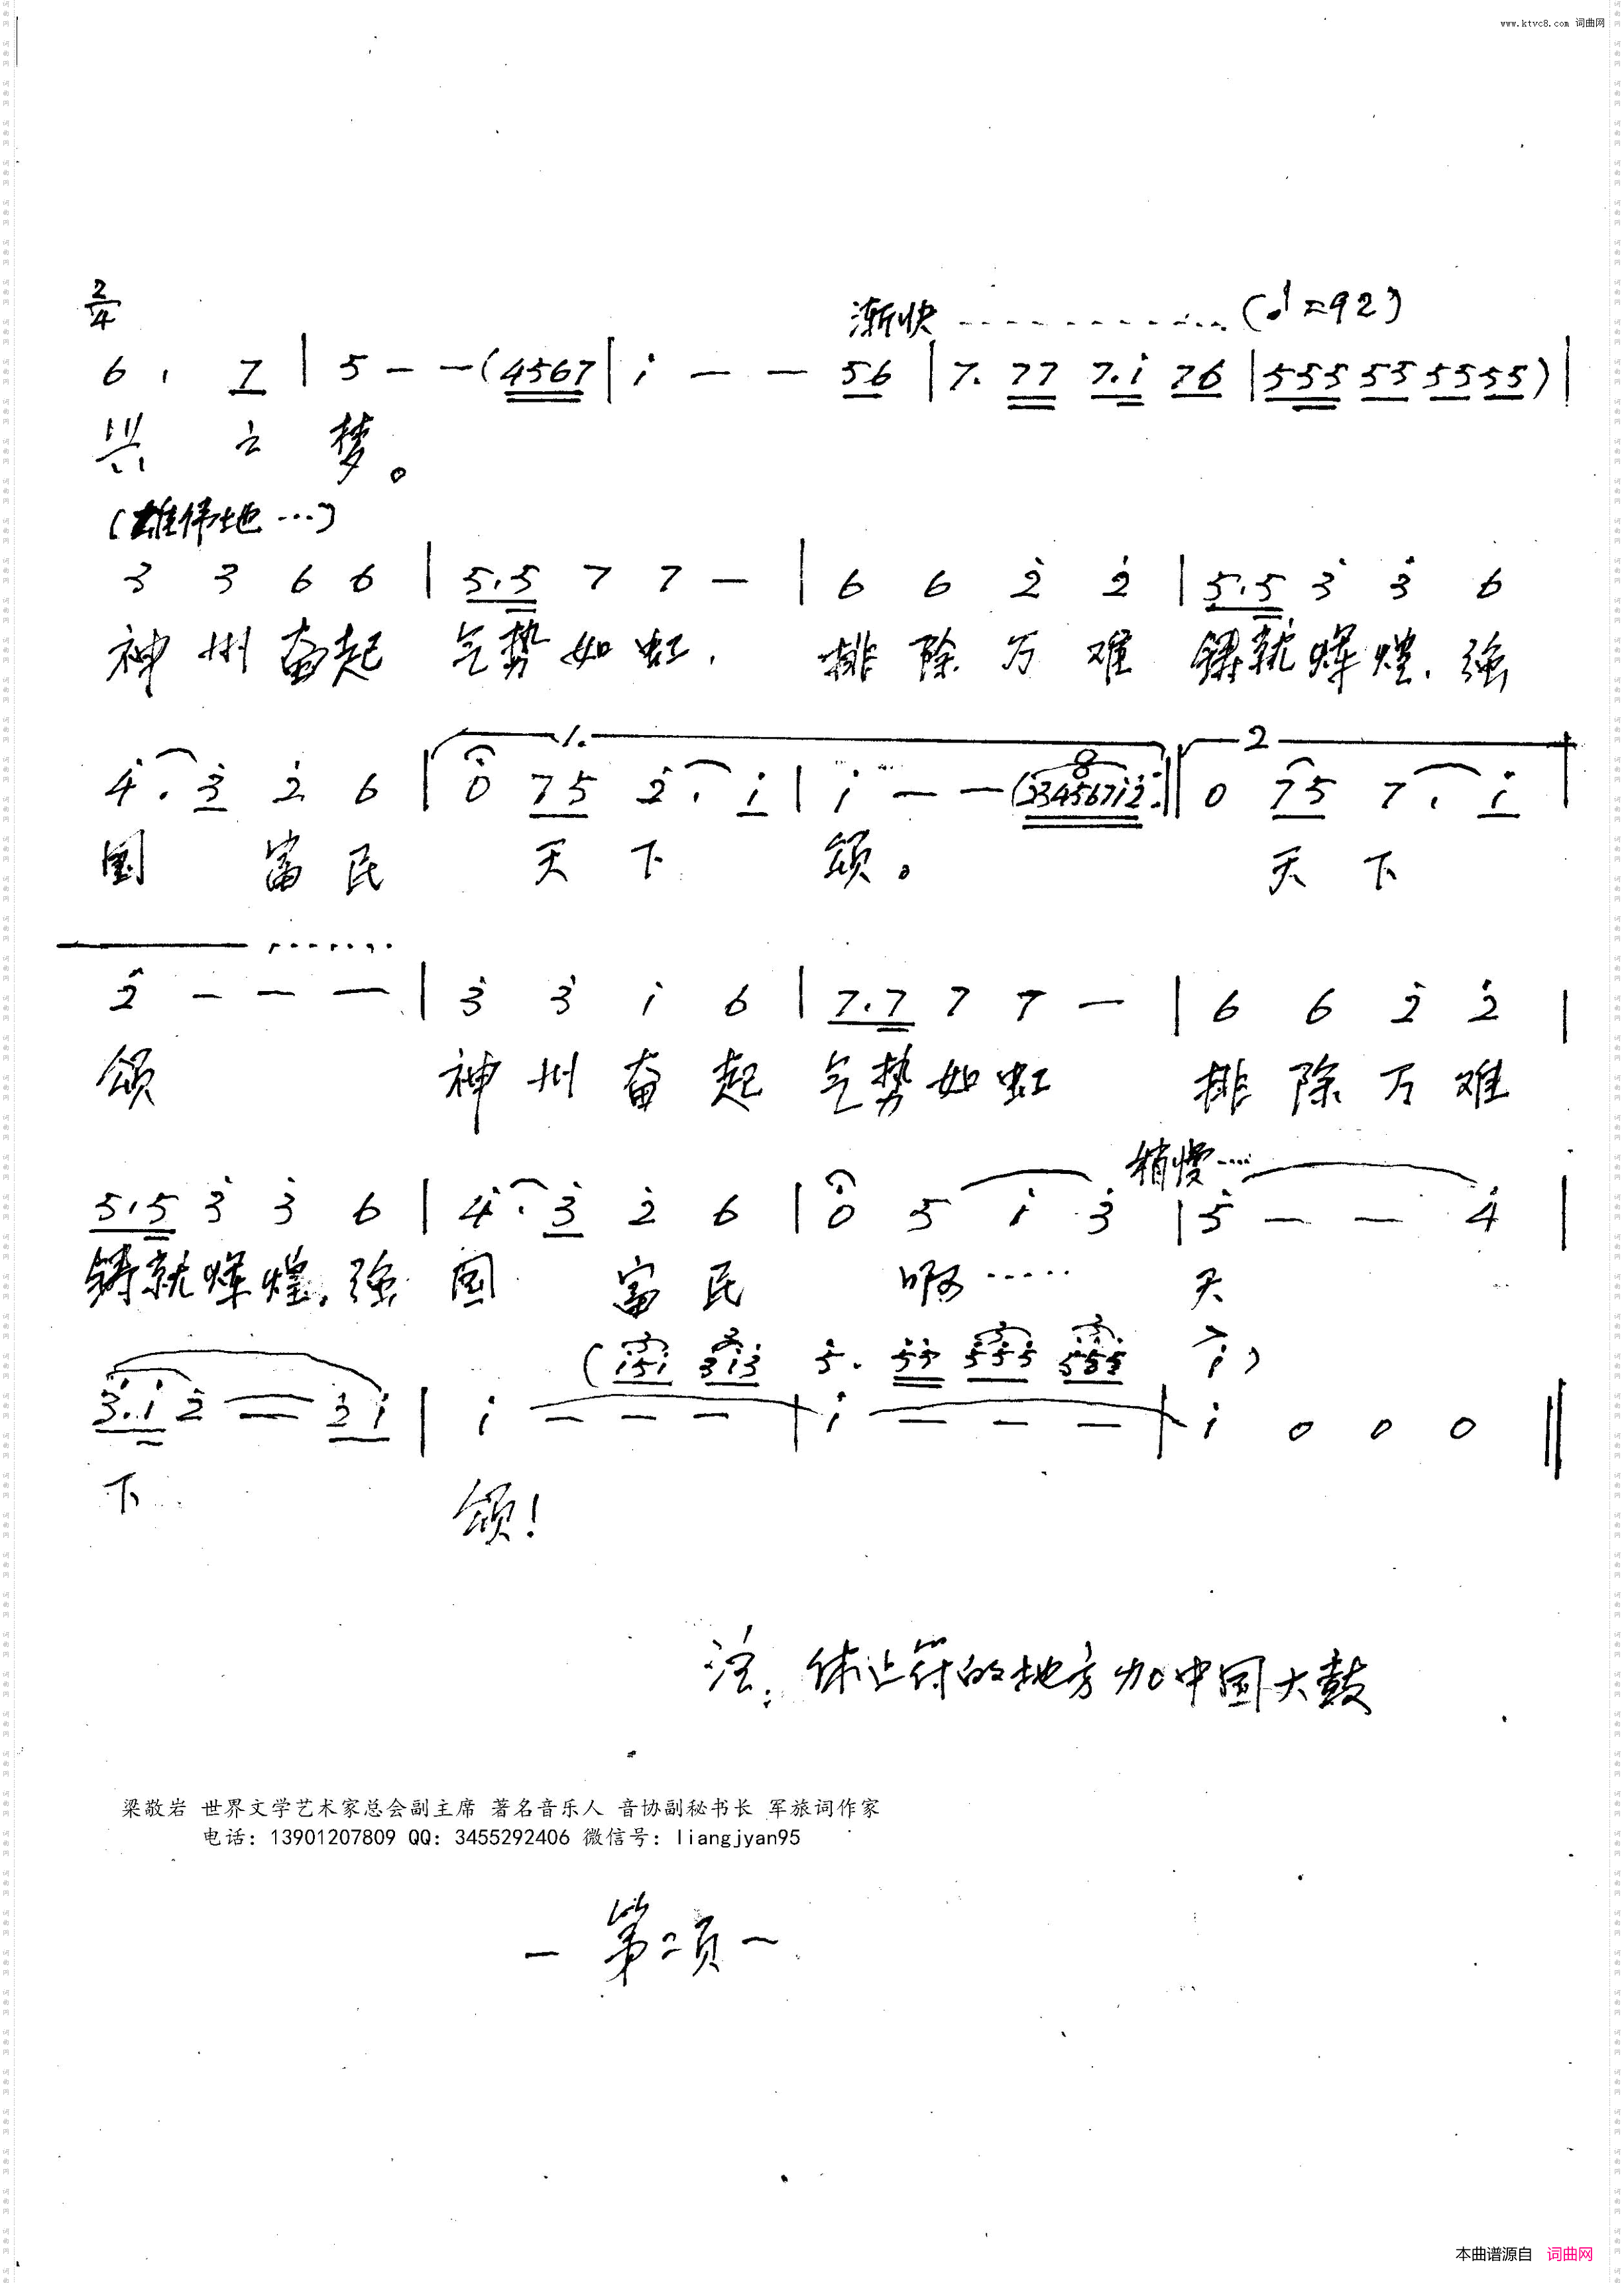 www.ktvc8.com 词曲网
2/4
渐快 ............ (♩=92)
6 . 7 | 5 - - (4567 | i - - 56 | 7. 77 7.i 76 | 555 55 5555) |
兴 之 梦。
(雄伟地…)
3 3 6 6 | 5.5 7 7 - | 6 6 2̇ 2̇ | 5.5 3̇ 3̇ 6
神 州 奋起 气势 如 虹, 排 除 万 难 铸就 辉 煌, 強
1. 2
4̇ . 3̇ 2̇ 6 | 0 75 2̇ . i | i - - (23456712 :|| 0 75 7 . i |
国 富 民 天 下 颂。 天 下
2̇ - - - | 3̇ 3̇ i 6 | 7.7 7 7 - | 6 6 2̇ 2̇ |
颂 神 州 奋 起 气势 如 虹 排 除 万 难
稍慢…
5.5 3̇ 3̇ 6 | 4̇ . 3̇ 2̇ 6 | 0 5 i 3̇ | 5̇ - - 4̇ |
铸就 辉 煌, 強 国 富 民 啊…… 天
(i5i 3i3 5. 55 555 555 i)
3̇.i 2̇ - 2̇i | i - - - | i - - - | i 0 0 0 ||
下 颂!
注: 休止符的地方加中国大鼓
梁敬岩 世界文学艺术家总会副主席 著名音乐人 音协副秘书长 军旅词作家
电话: 13901207809 QQ: 3455292406 微信号: liangjyan95
- 第二页 -
本曲谱源自 词曲网